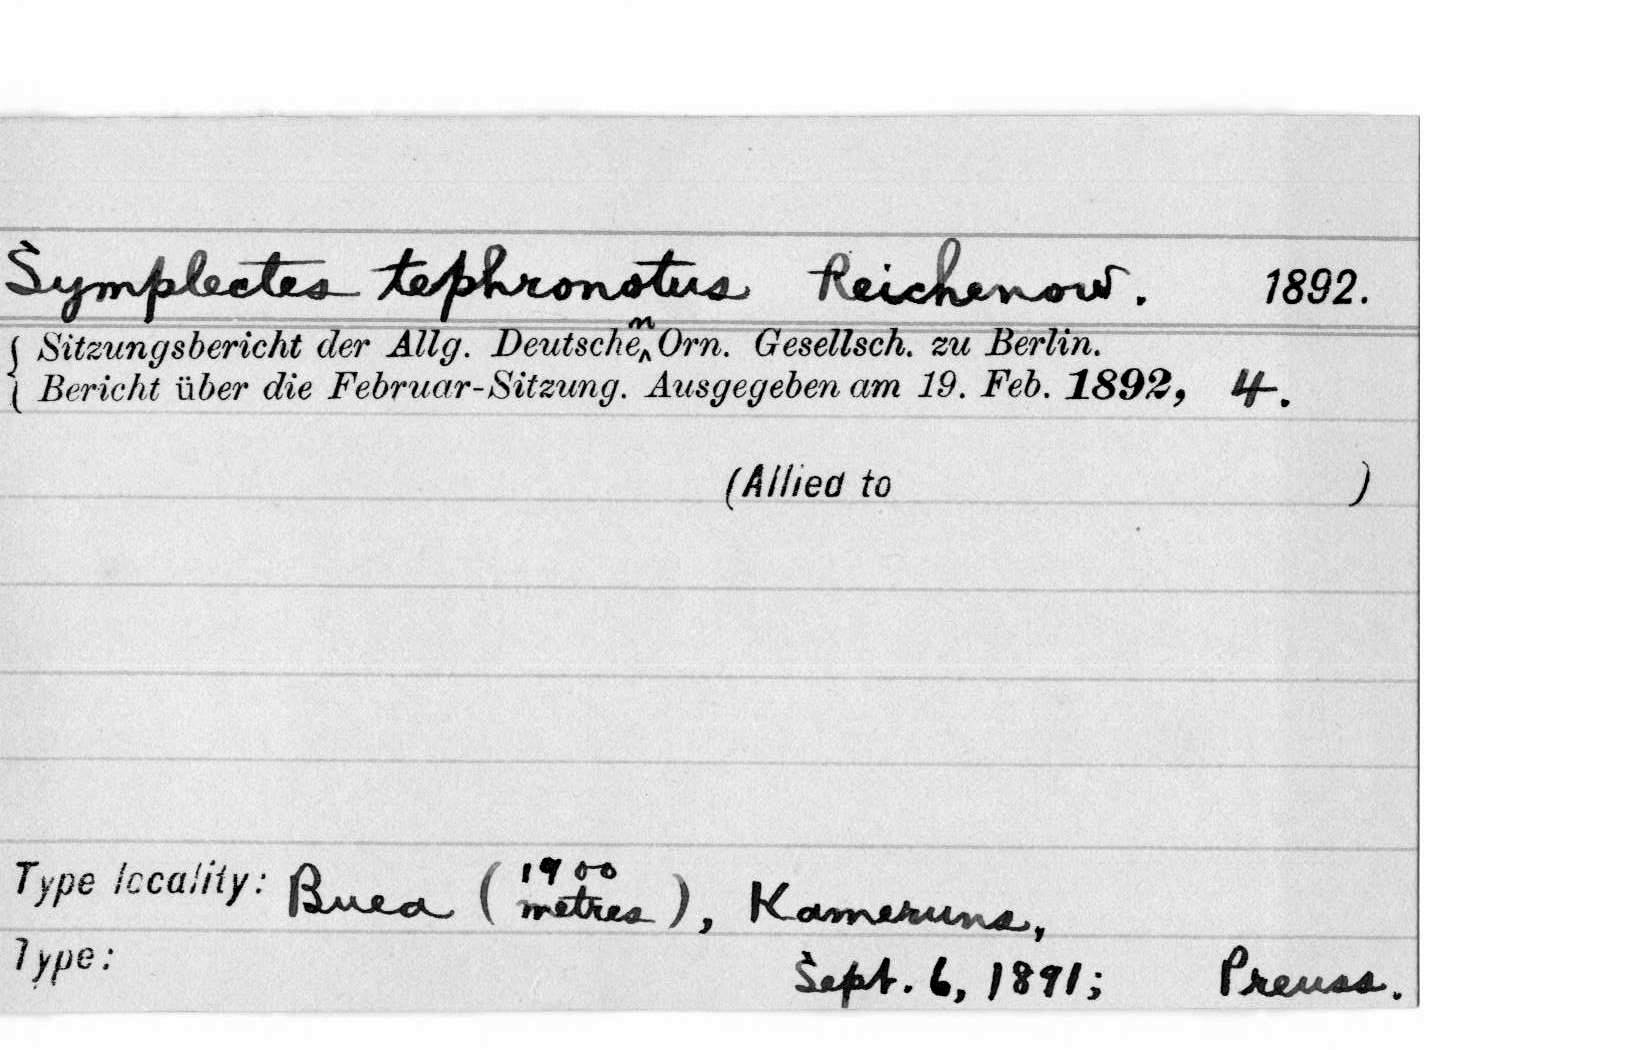 Symplectes tephronotus Reichenow. 1892.
{ Sitzungsbericht der Allg. Deutschen Orn. Gesellsch. zu Berlin.
{ Bericht über die Februar-Sitzung. Ausgegeben am 19. Feb. 1892, 4.
(Allied to )
Type locality: Buea (1900 metres), Kameruns,
Type: Sept. 6, 1891; Preuss.